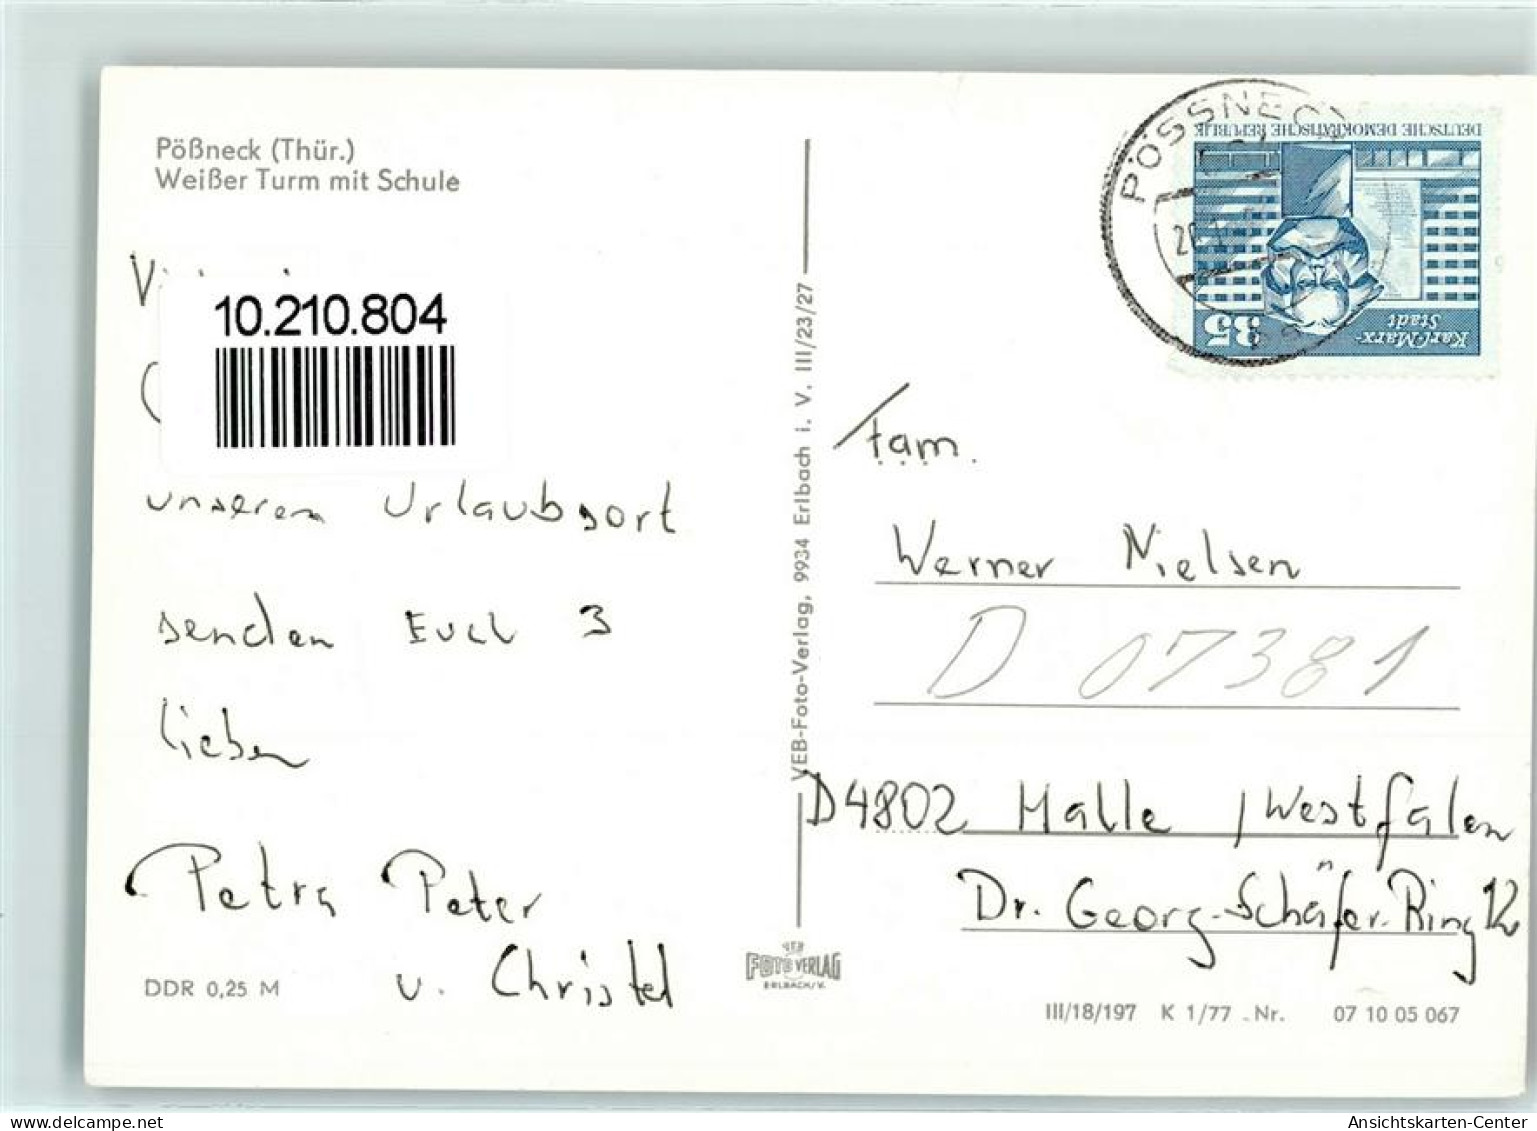 Pößneck (Thür.)
Weißer Turm mit Schule
10.210.804
unserem Urlaubsort
senden Euch 3
lieben
Petra Peter
u. Christel
DDR 0,25 M
VEB-Foto-Verlag, 9934 Erlbach i. V. III/23/27
VEB
FOTO VERLAG
ERLBACH/V.
PÖSSNECK
DEUTSCHE DEMOKRATISCHE REPUBLIK
35
Karl-Marx-
Stadt
Fam.
Werner Nielsen
D 07381
D4802 Halle /Westfalen
Dr. Georg-Schäfer-Ring 12
III/18/197 K 1/77 Nr. 07 10 05 067
Ansichtskarten-Center